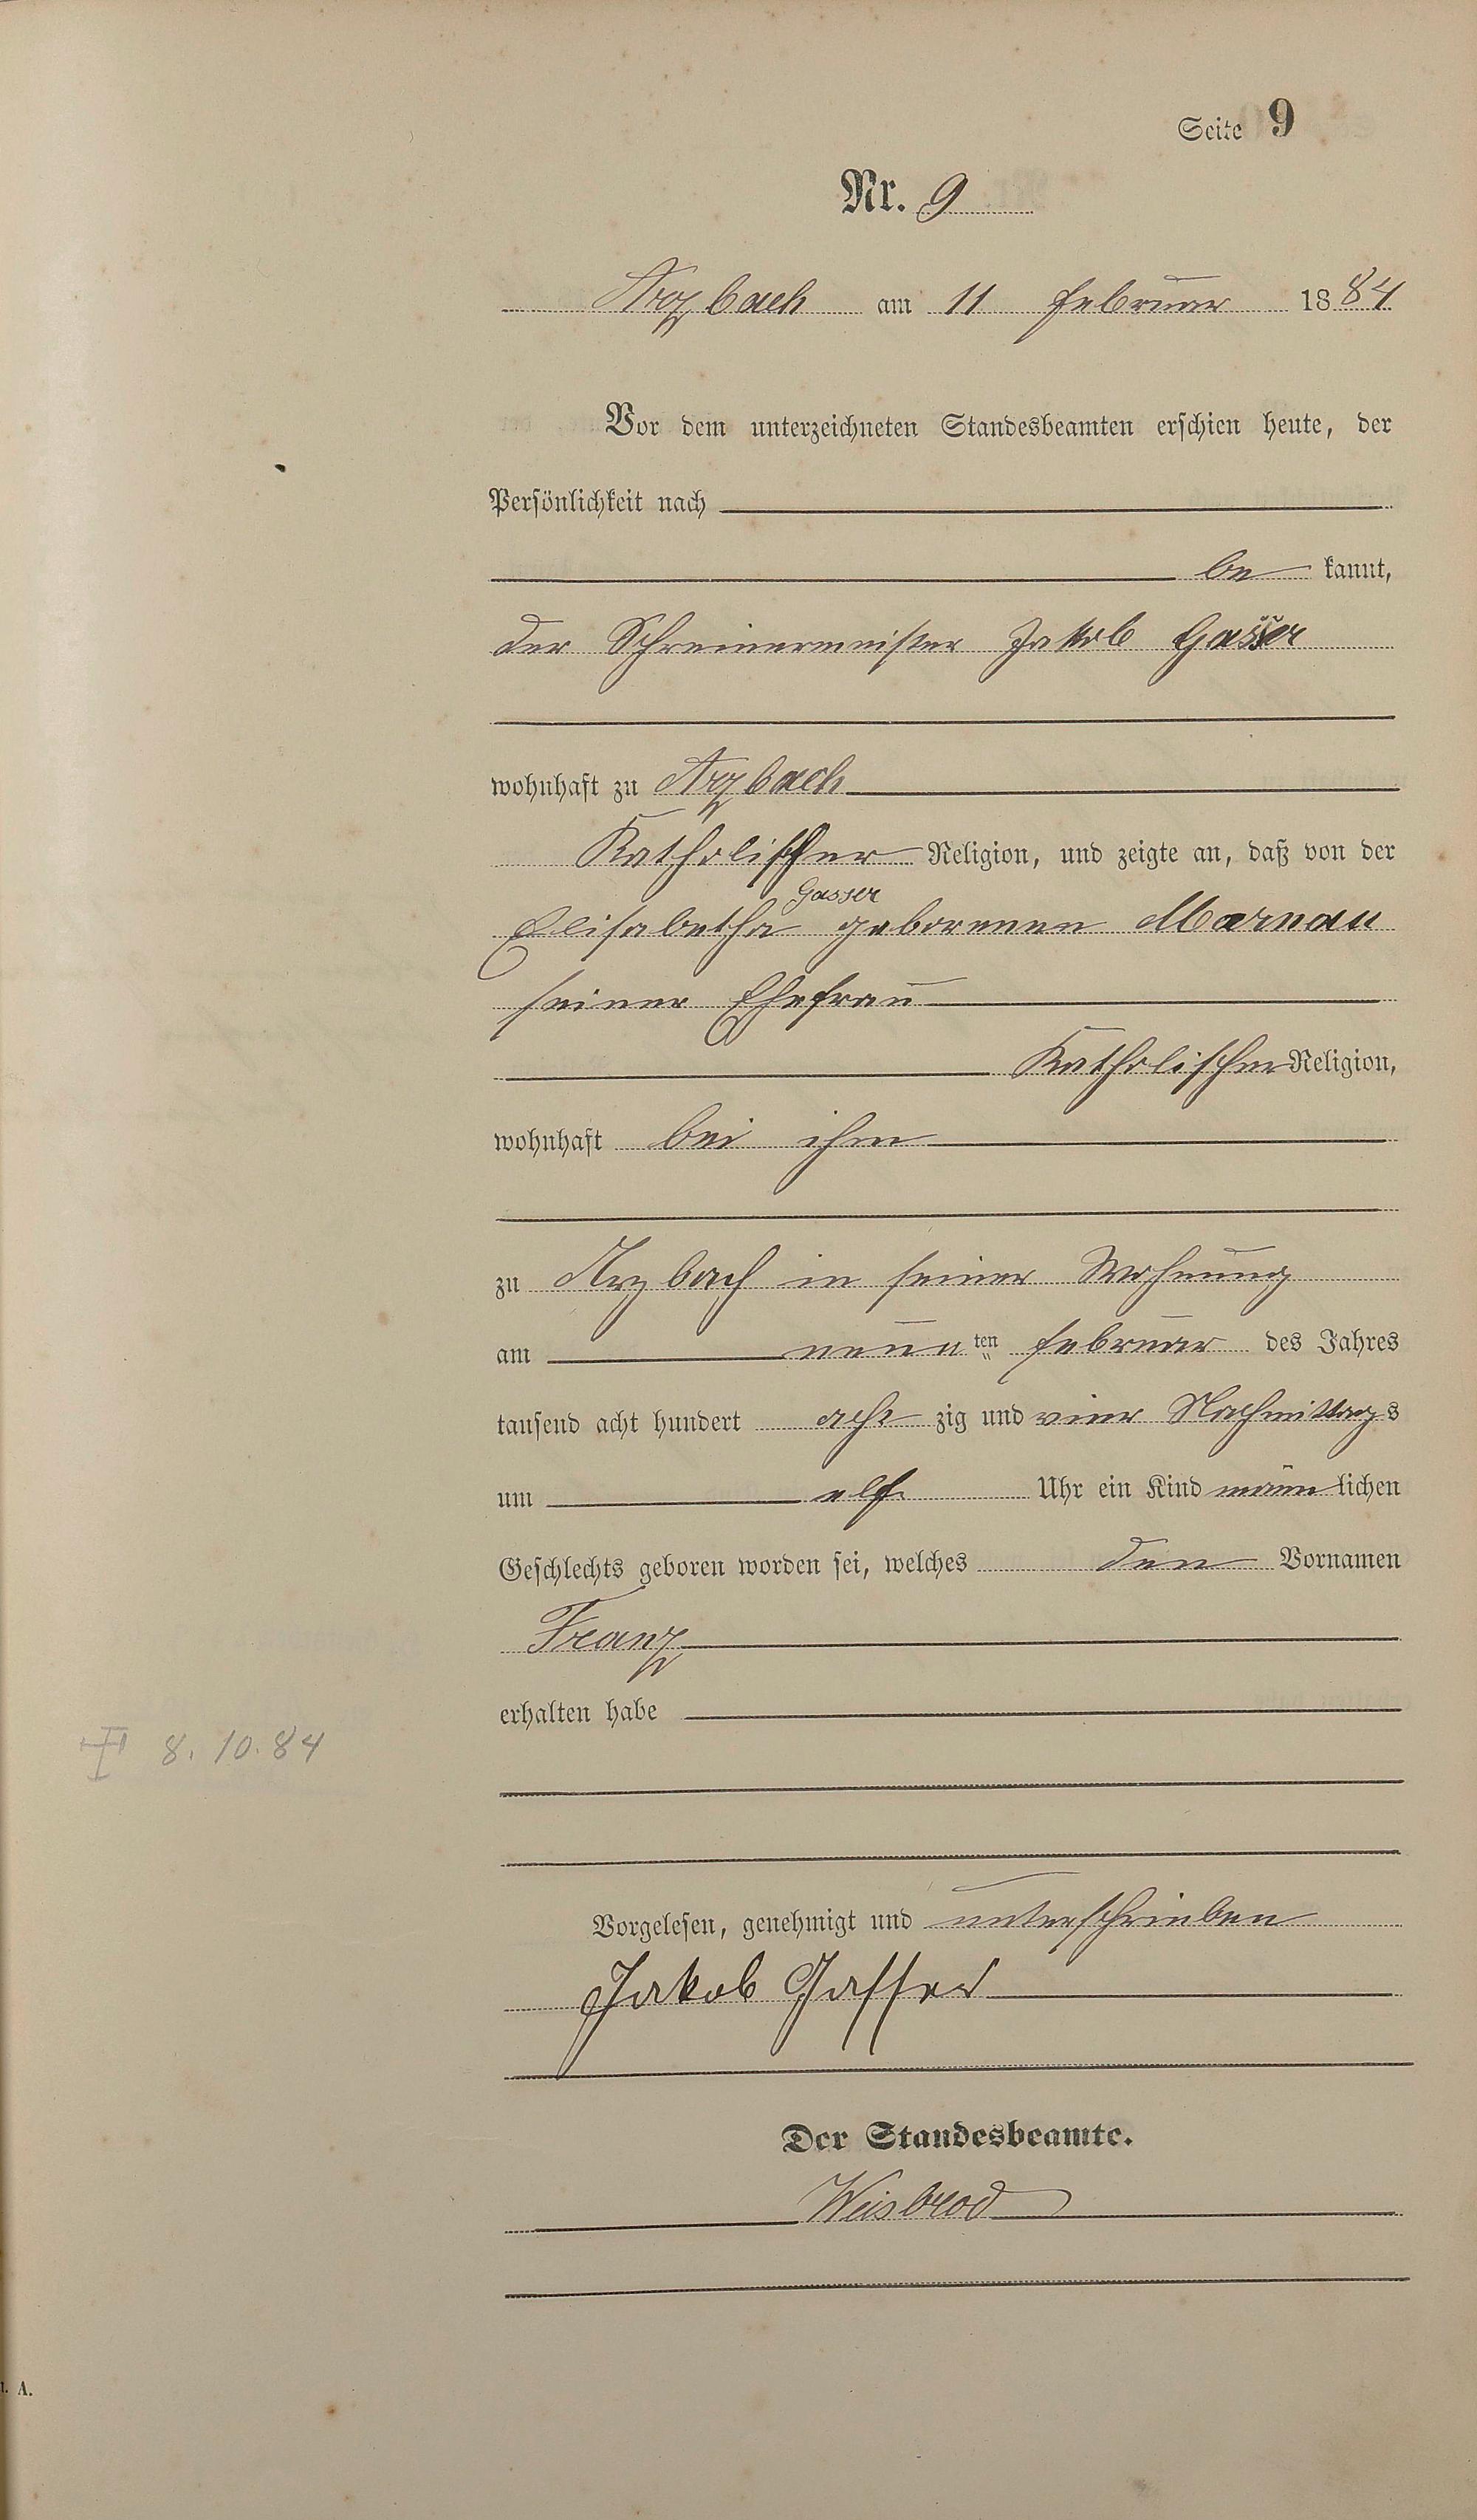 Seite 9
Nr. 9
Arzbach am 11 Februar 1884
Vor dem unterzeichneten Standesbeamten erschien heute, der
Persönlichkeit nach
be kannt,
der Schreinermeister Jakob Gasser
wohnhaft zu Arzbach
Katholischer Religion, und zeigte an, daß von der
Gasser
Elisabetha geborenen Marnau
seiner Ehefrau
Katholischer Religion,
wohnhaft bei ihm
zu Arzbach in seiner Wohnung
am neun ten Februar des Jahres
tausend acht hundert acht zig und vier Nachmittags
um elf Uhr ein Kind männlichen
Geschlechts geboren worden sei, welches den Vornamen
Franz
erhalten habe
8.10.84
Vorgelesen, genehmigt und unterschrieben
Jakob Gasser
Der Standesbeamte.
Weisbrod
A.